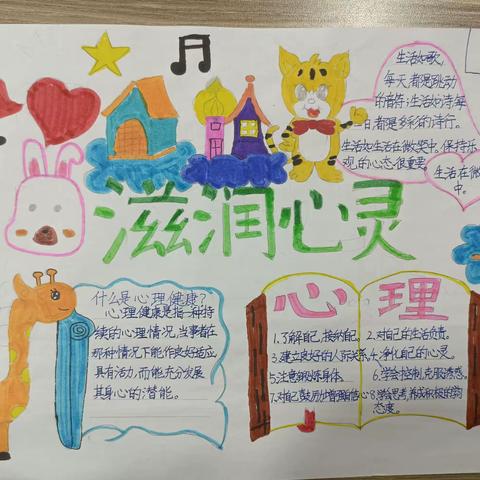 生活如歌,
每天都是跳动
的音符;生活如诗,每
一日都是多彩的诗行。
生活如生活在微笑中。保持乐
观的心态很重要。
生活在微
中。
滋润心灵
什么是心理健康?
心理健康是指一种持
续的心理情况,当事者在
那种情况下能作良好适应,
具有活力,而能充分发展
其身心的潜能。
心理
1.了解自己,接纳自己。 2.对自己的生活负责。
3.建立良好的人际关系。 4.净化自己的心灵。
5.注意锻炼身体 6.学会控制,克服诱惑。
7.对自己鼓励增强自信心 8.学会思考,养成积极的
态度。